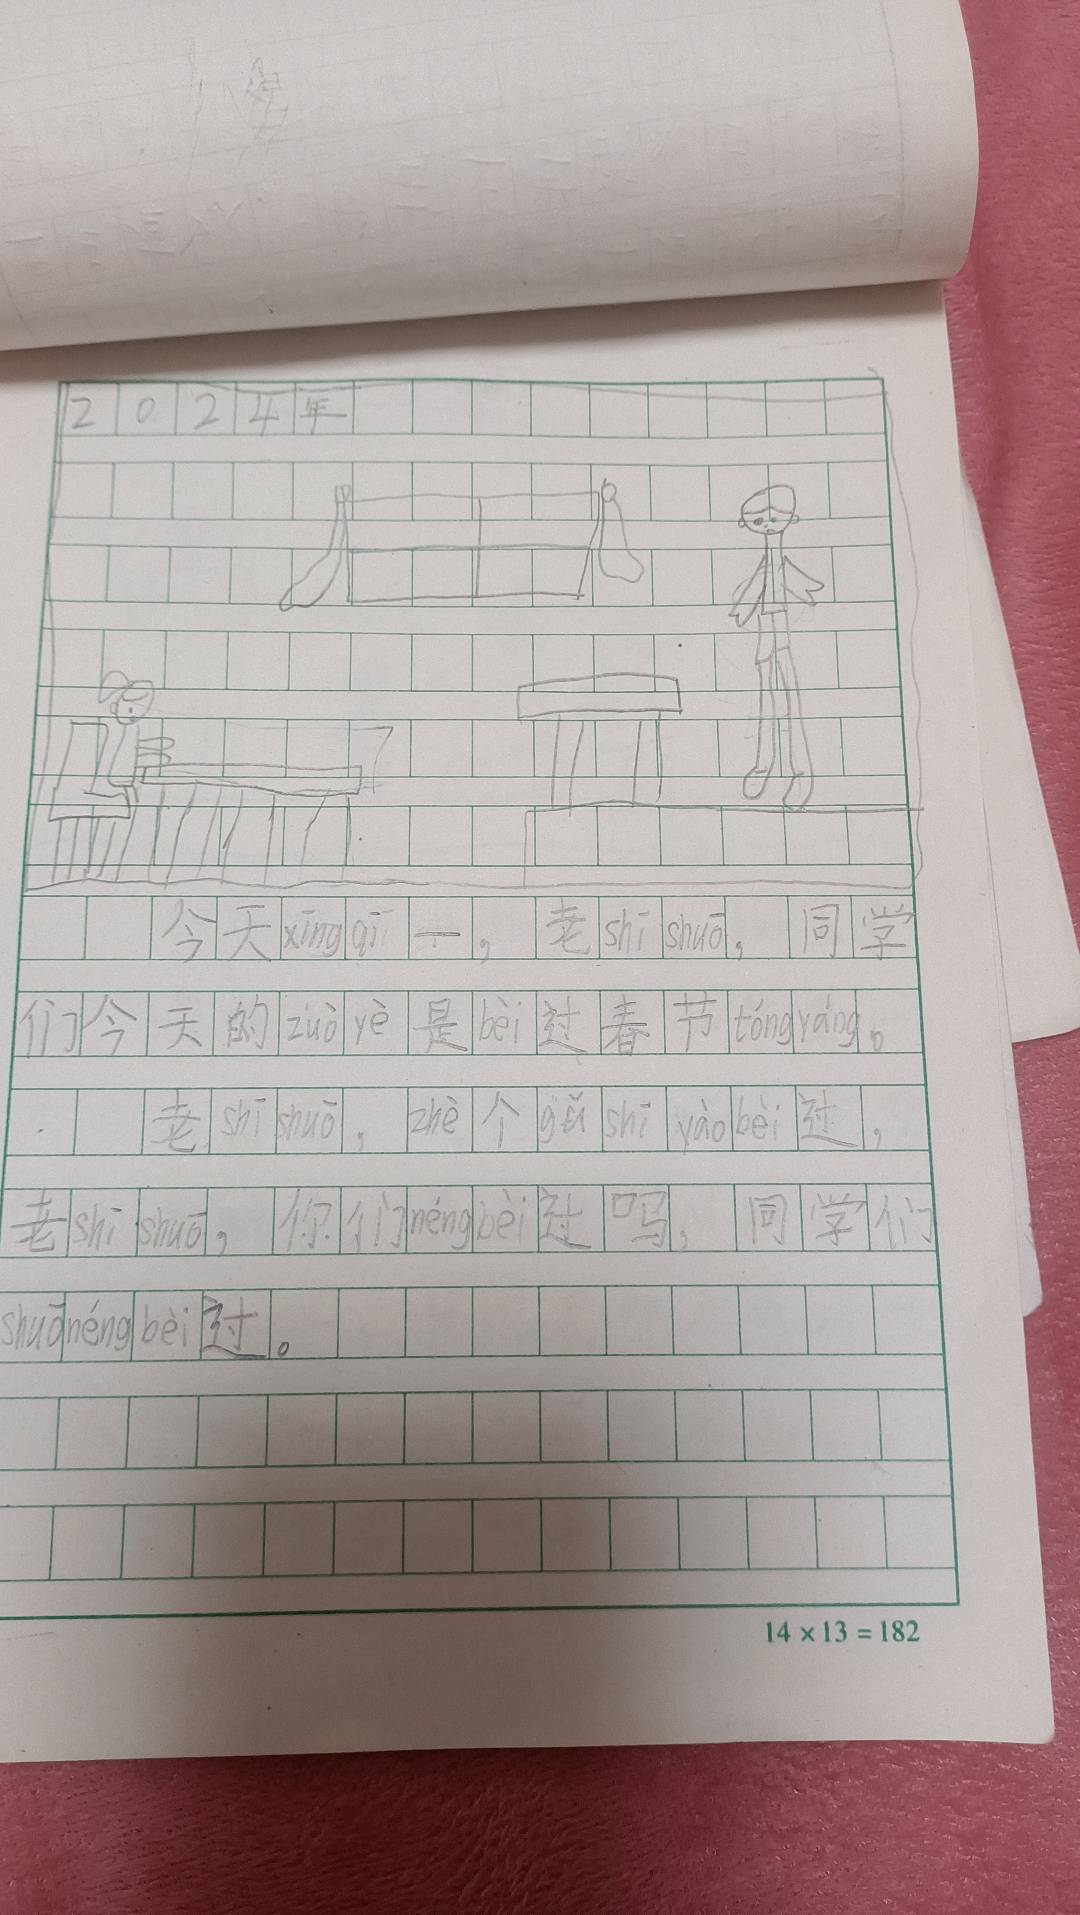 2024年
今天xīngqī一，老shī shuō，同学
们今天的zuòyè是bèi过春节tóngyáng。
老shī shuō，zhè个gǔ shī yào bèi过，
老shī shuō，你们néng bèi过吗，同学们
shuō néng bèi过。
14×13=182